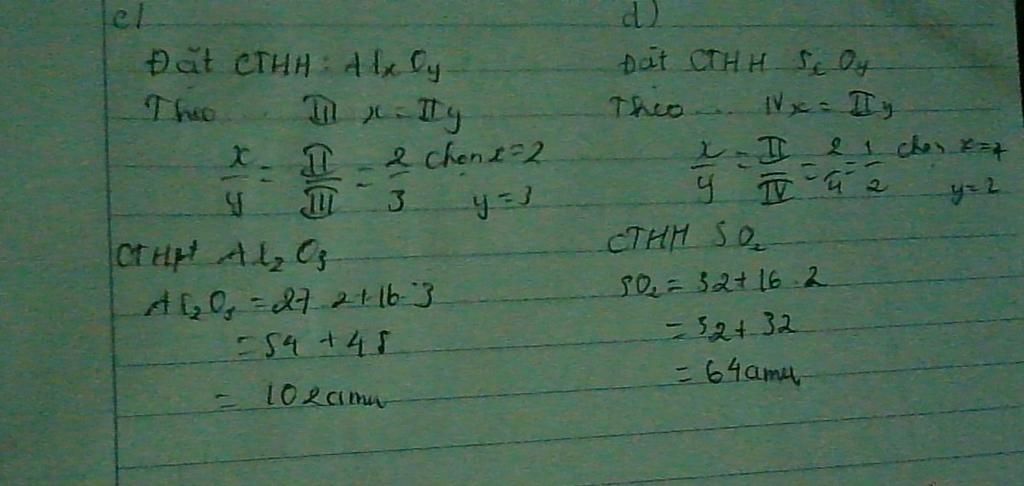 c)
Đặt CTHH: AlxOy
Theo ... III x = II y
x/y = II/III = 2/3 chọn x=2
y=3
CTHH Al₂O₃
Al₂O₃ = 27.2+16.3
= 54 + 48
= 102amu
d)
Đặt CTHH SxOy
Theo ... IV x = II y
x/y = II/IV = 2/4 = 1/2 chọn x=1
y=2
CTHH SO₂
SO₂ = 32+16.2
= 32+32
= 64amu